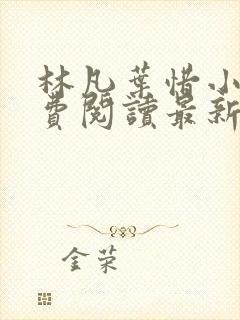 林凡葉惜小
費閱讀最新
金荣